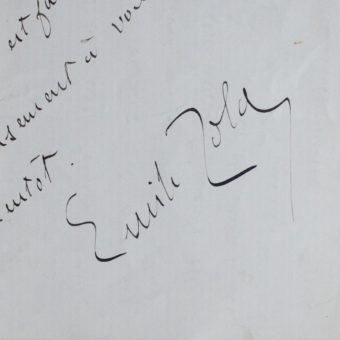 est fa
sement à vou
entôt.
Emile Zola